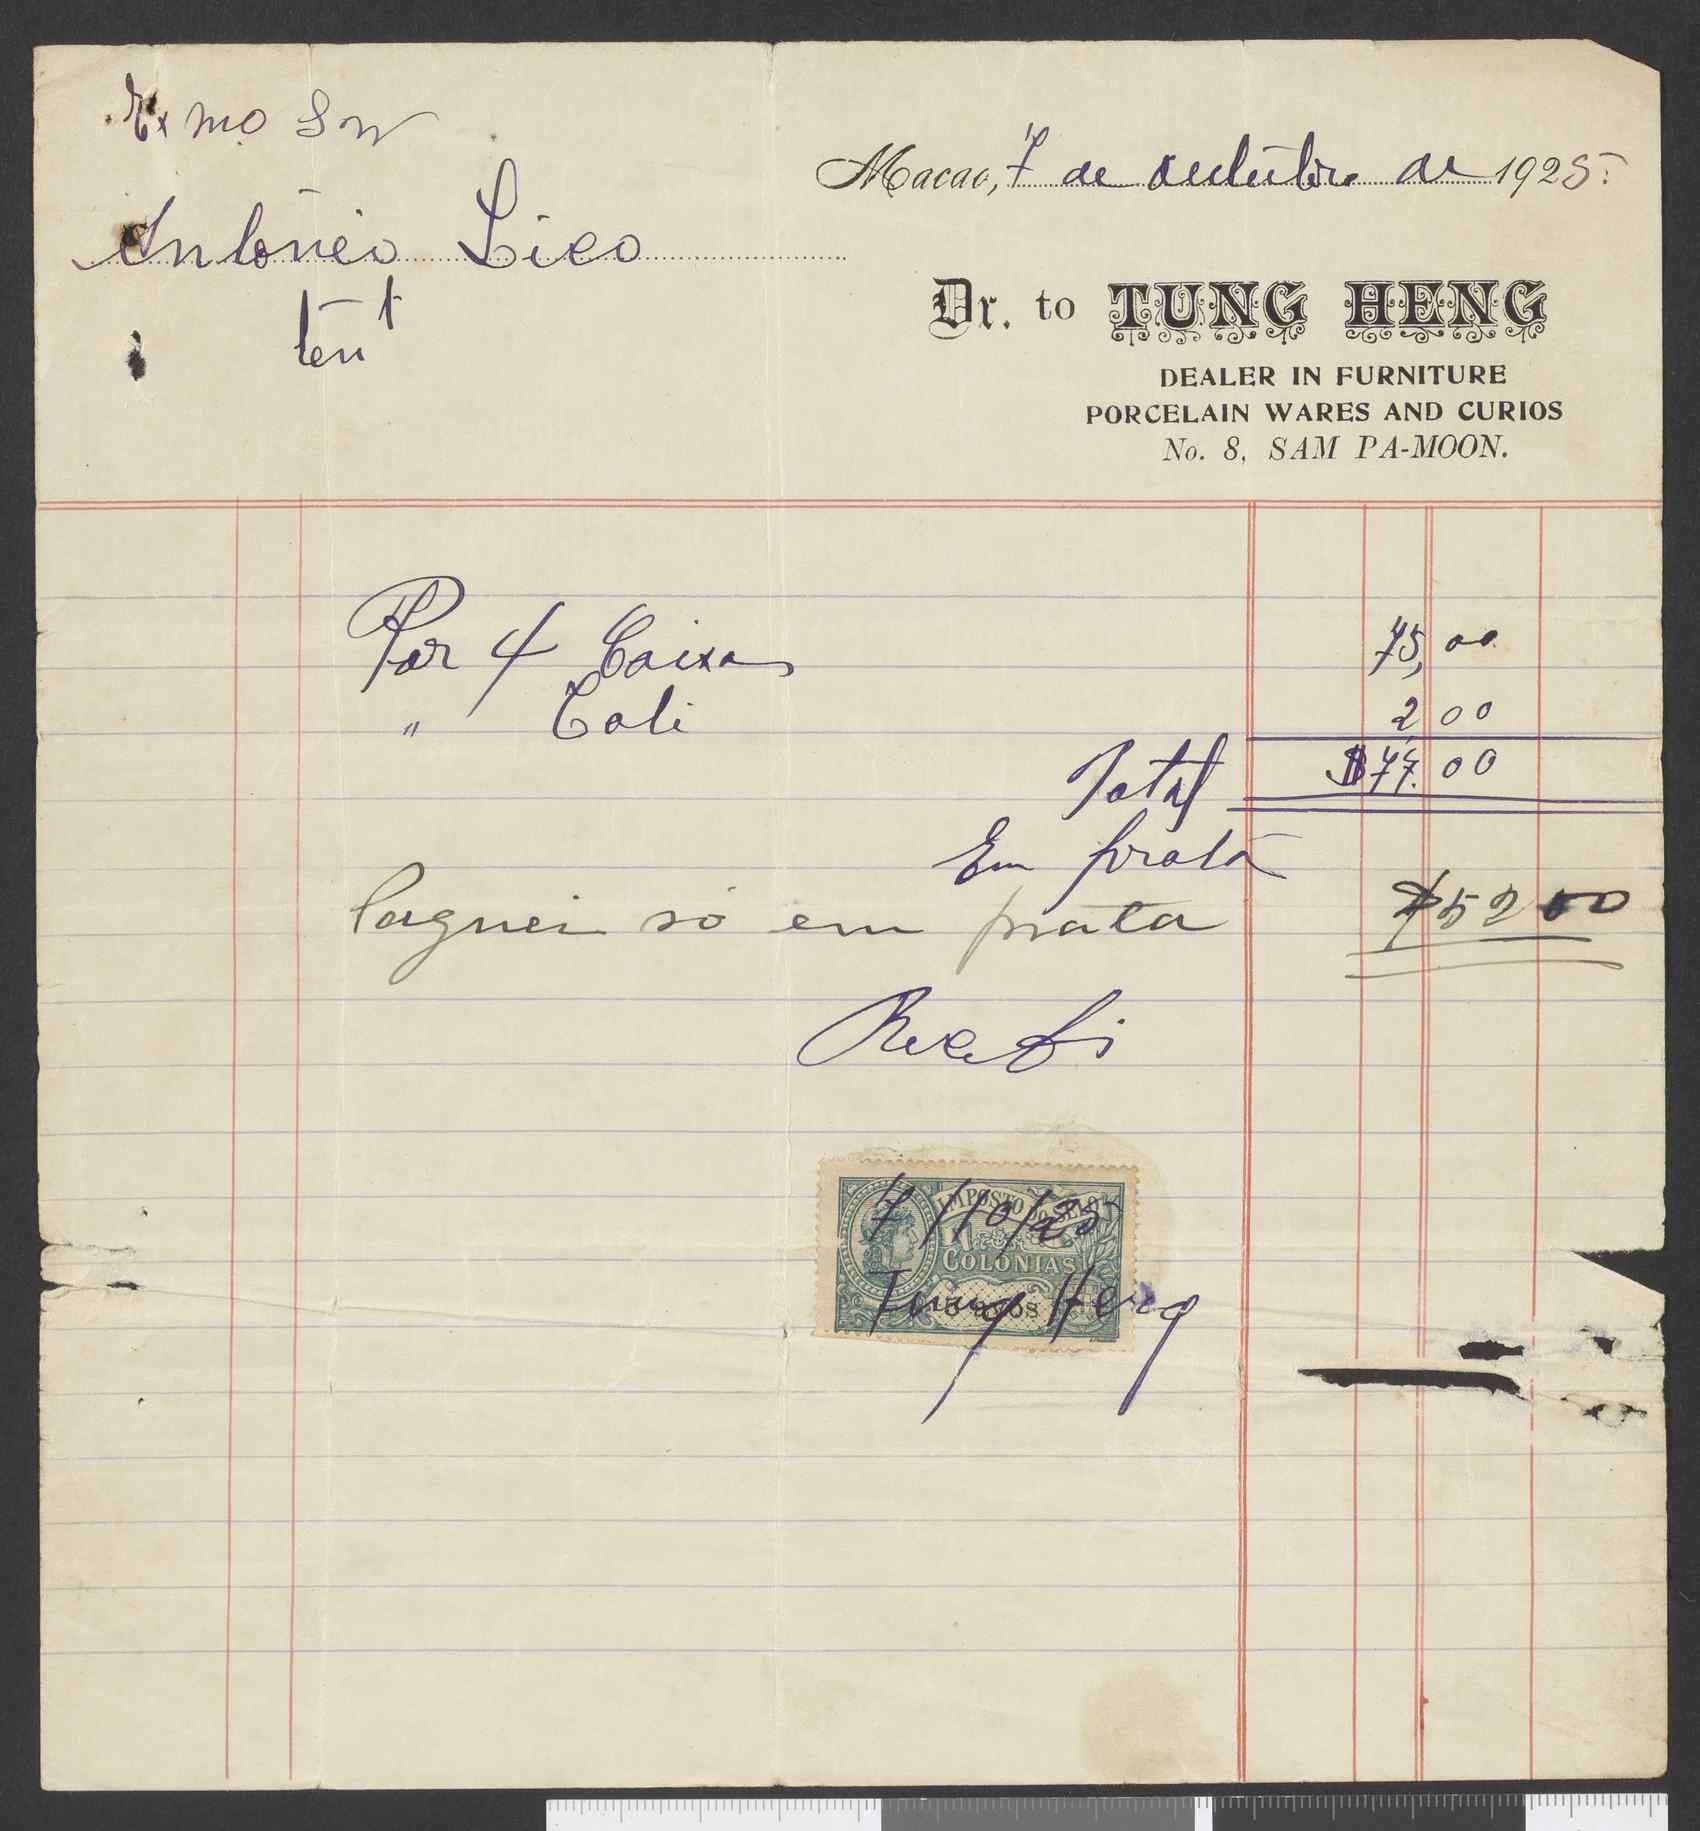 Exmo Snr
António Lico
Macao, 7 de outubro de 1925
Dr. to TUNG HENG
DEALER IN FURNITURE
PORCELAIN WARES AND CURIOS
No. 8, SAM PA-MOON.
Por 4 Caixas 75,00
" Coli 2,00
Total $77.00
Em prata
Paguei só em prata $52 00
Recebi
IMPOSTO DO SELO
COLONIAS
7/10/25
Tung Heng